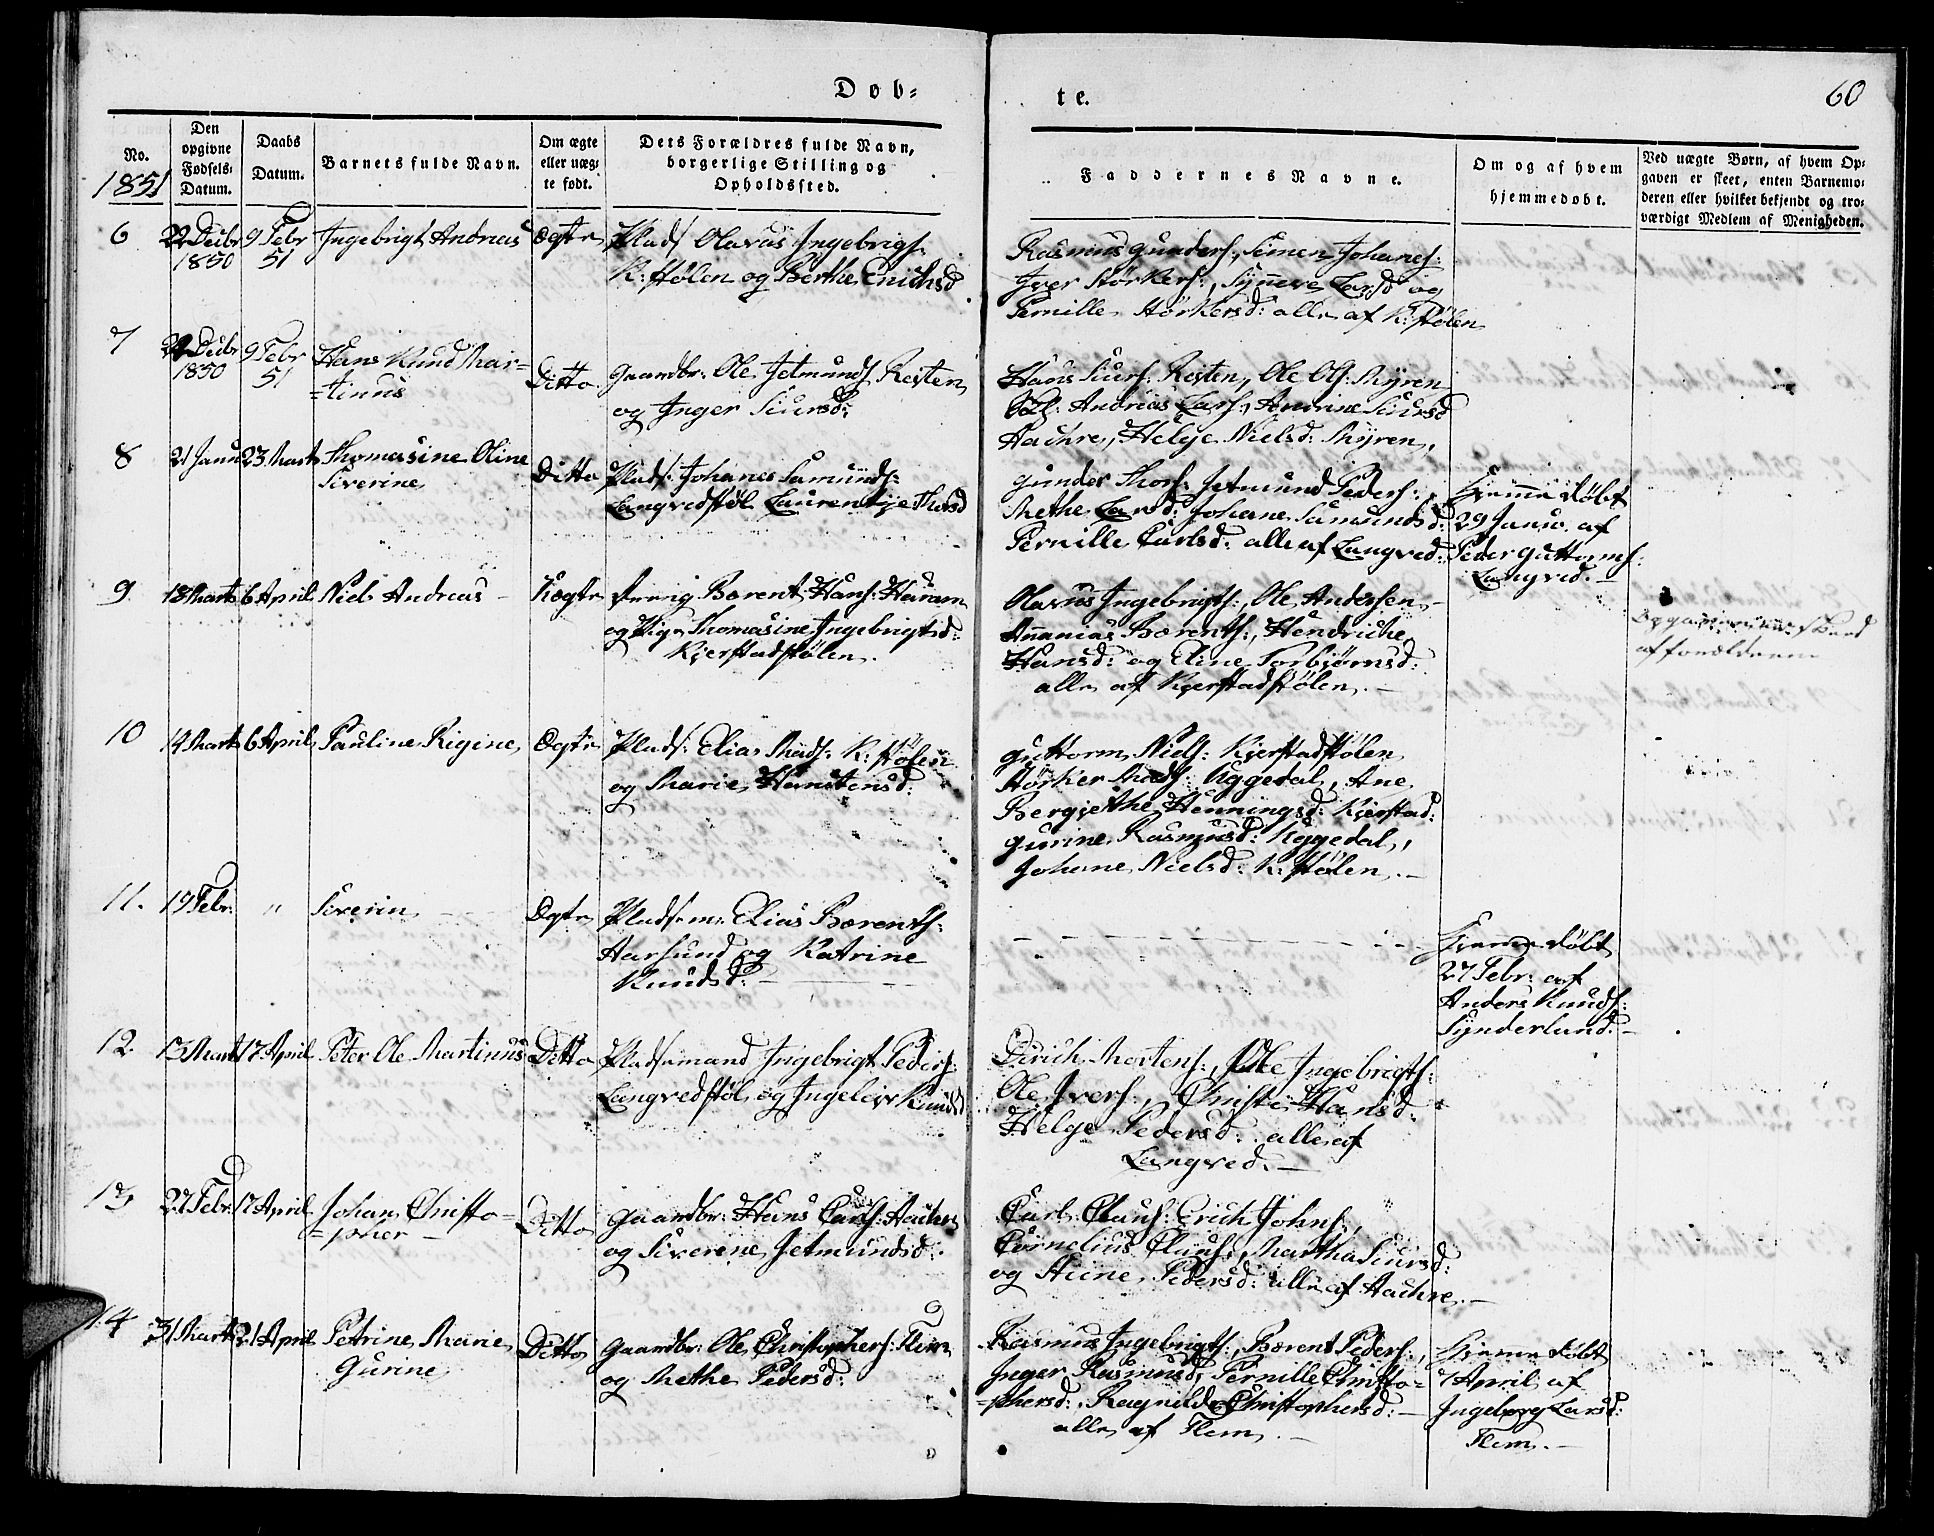 Døb-
te.
60
No.
1851
Den opgivne Fødsels-Datum.
Daabs Datum.
Barnets fulde Navn.
Om ægte eller uæg-te født.
Dets Forældres fulde Navn,
borgerlige Stilling og
Opholdssted.
Faddernes Navne.
Om og af hvem
hjemmedøbt.
Ved uægte Børn, af hvem Op-
gaven er skeet, enten Barnemo-
deren eller hvilket bekjendt og tro-
værdigt Medlem af Menigheden.
6 22 Decbr 1850 9 Febr 51 Ingebrigt Andreas Ægte
Plads. Olavus Ingebrigts.
K:stølen og Berthe Erichsd
Rasmus Gunders:, Simen Johanes:
Iver Størkers:, Synneve Larsd og
Pernille Størkersd: alle af K:stølen
7 Decbr 1850 9 Febr 51 Hans Knud Mar-
=tinus
Ditto
Gaardbr: Ole Jetmunds. Resten
og Inger Siursd:
Hans Siurs: Resten, Ole Ols: Myren
Andreas Lars:, Andrine Siursd
Hachre, Helge Nielsd: Myren,
8 21 Janu 23 Marts Thomasine Oline
Siverine
Ditto
Plads: Johanes Samunds:
Langvedstøl Laurentze Thorsd
Gunder Thors: Jetmund Peders:
Methe Larsd: Johane Samundsd:
Pernille Carlsd: alle af Langved:
Hjemmedøbt
29 Janu. af
Peder Guttorms:
Langved.
9 13 Marts 6 April Niels Andreas Uægte
Bærent Hans: Haram
og Pige Thomasine Ingebrigtsd:
Kjerstadstølen.
Olavus Ingebrigts:, Ole Andersen
Ananias Bærents:, Hendriche
Hansd: og Eline Torbjørnsd:
alle af Kjerstadstølen.
af forældrene
10 14 Marts 6 April Pauline Rigine Ægte
Plads: Elias Mads: K:stølen
og Marie Hanstensd:
Guttorm Niels: Kjerstadstølen
Størker Mads: Uggedal, Ane
Bergjethe Henningsd: Kjerstad:
Gurine Rasmusd: Uggedal,
Johane Nielsd: K:stølen.
11. 19 Febr. " Severin Ægte
Pladsm: Elias Bærents:
Aarsund og Katrine
Knudsd:
Hjemmedøbt
27 Febr: af
Anders Knuds:
Synderlund.
12. 13 Marts 17 April Peter Ole Martinus Ditto
Pladsmand Ingebrigt Peders
Langvedstøl og Ingeleiv Knudsd
Dirich Mortens:, Ole Ingebrigts:
Ole Ivers:, Christie Hansd:
Helge Pedersd: alle af
Langved.
13 27 Febr. 17 April Johan Christo-
=pher
Ditto
Gaardbr: Hans Carls: Hachre
og Siverene Jetmundsd:
Carl Claus: Erich Johns:,
Cornelius Claus:, Martha Siursd:
og Stine Pedersd: alle af Hachre.
14 31 Marts 21 April Petrine Marie
Gurine
Ditto
Gaardbr: Ole Christophers: Flem
og Methe Pedersd:
Rasmus Ingebrigts:, Bærent Peders:,
Inger Rasmusd, Pernille Christo-
=phersd:, Ragnilde Christophersd:
alle af Flem.
Hjemmedøbt
7 April af
Ingeborg Larsd:
Flem.